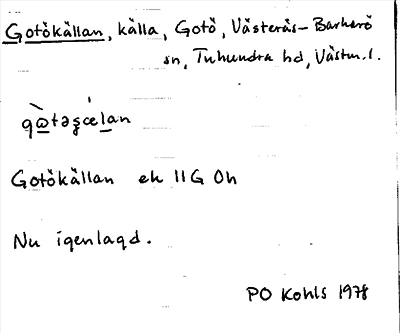 Gotökällan, källa, Gotö, Västerås-Barkarö
sn, Tuhundra hd, Västm. l.
gωtəʂœlan
Gotökällan ek 11G 0h
Nu igenlagd.
PO Kohls 1978